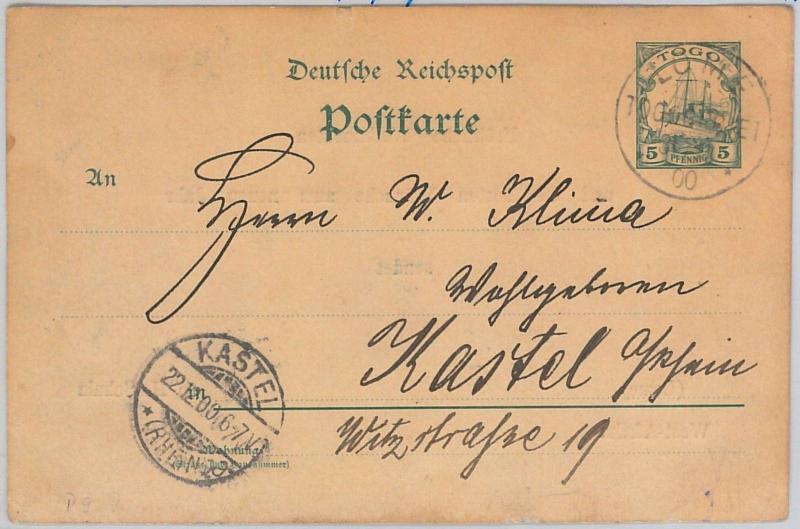 Deutsche Reichspost
Postkarte
TOGO
5 PFENNIG 5
LOME
00
An
Herrn W. Klima
Wohlgeboren
Kastel
KASTEL
22.
00.6-7N.
(RHEIN)
Wohnung
(Straße und Hausnummer)
straße 19